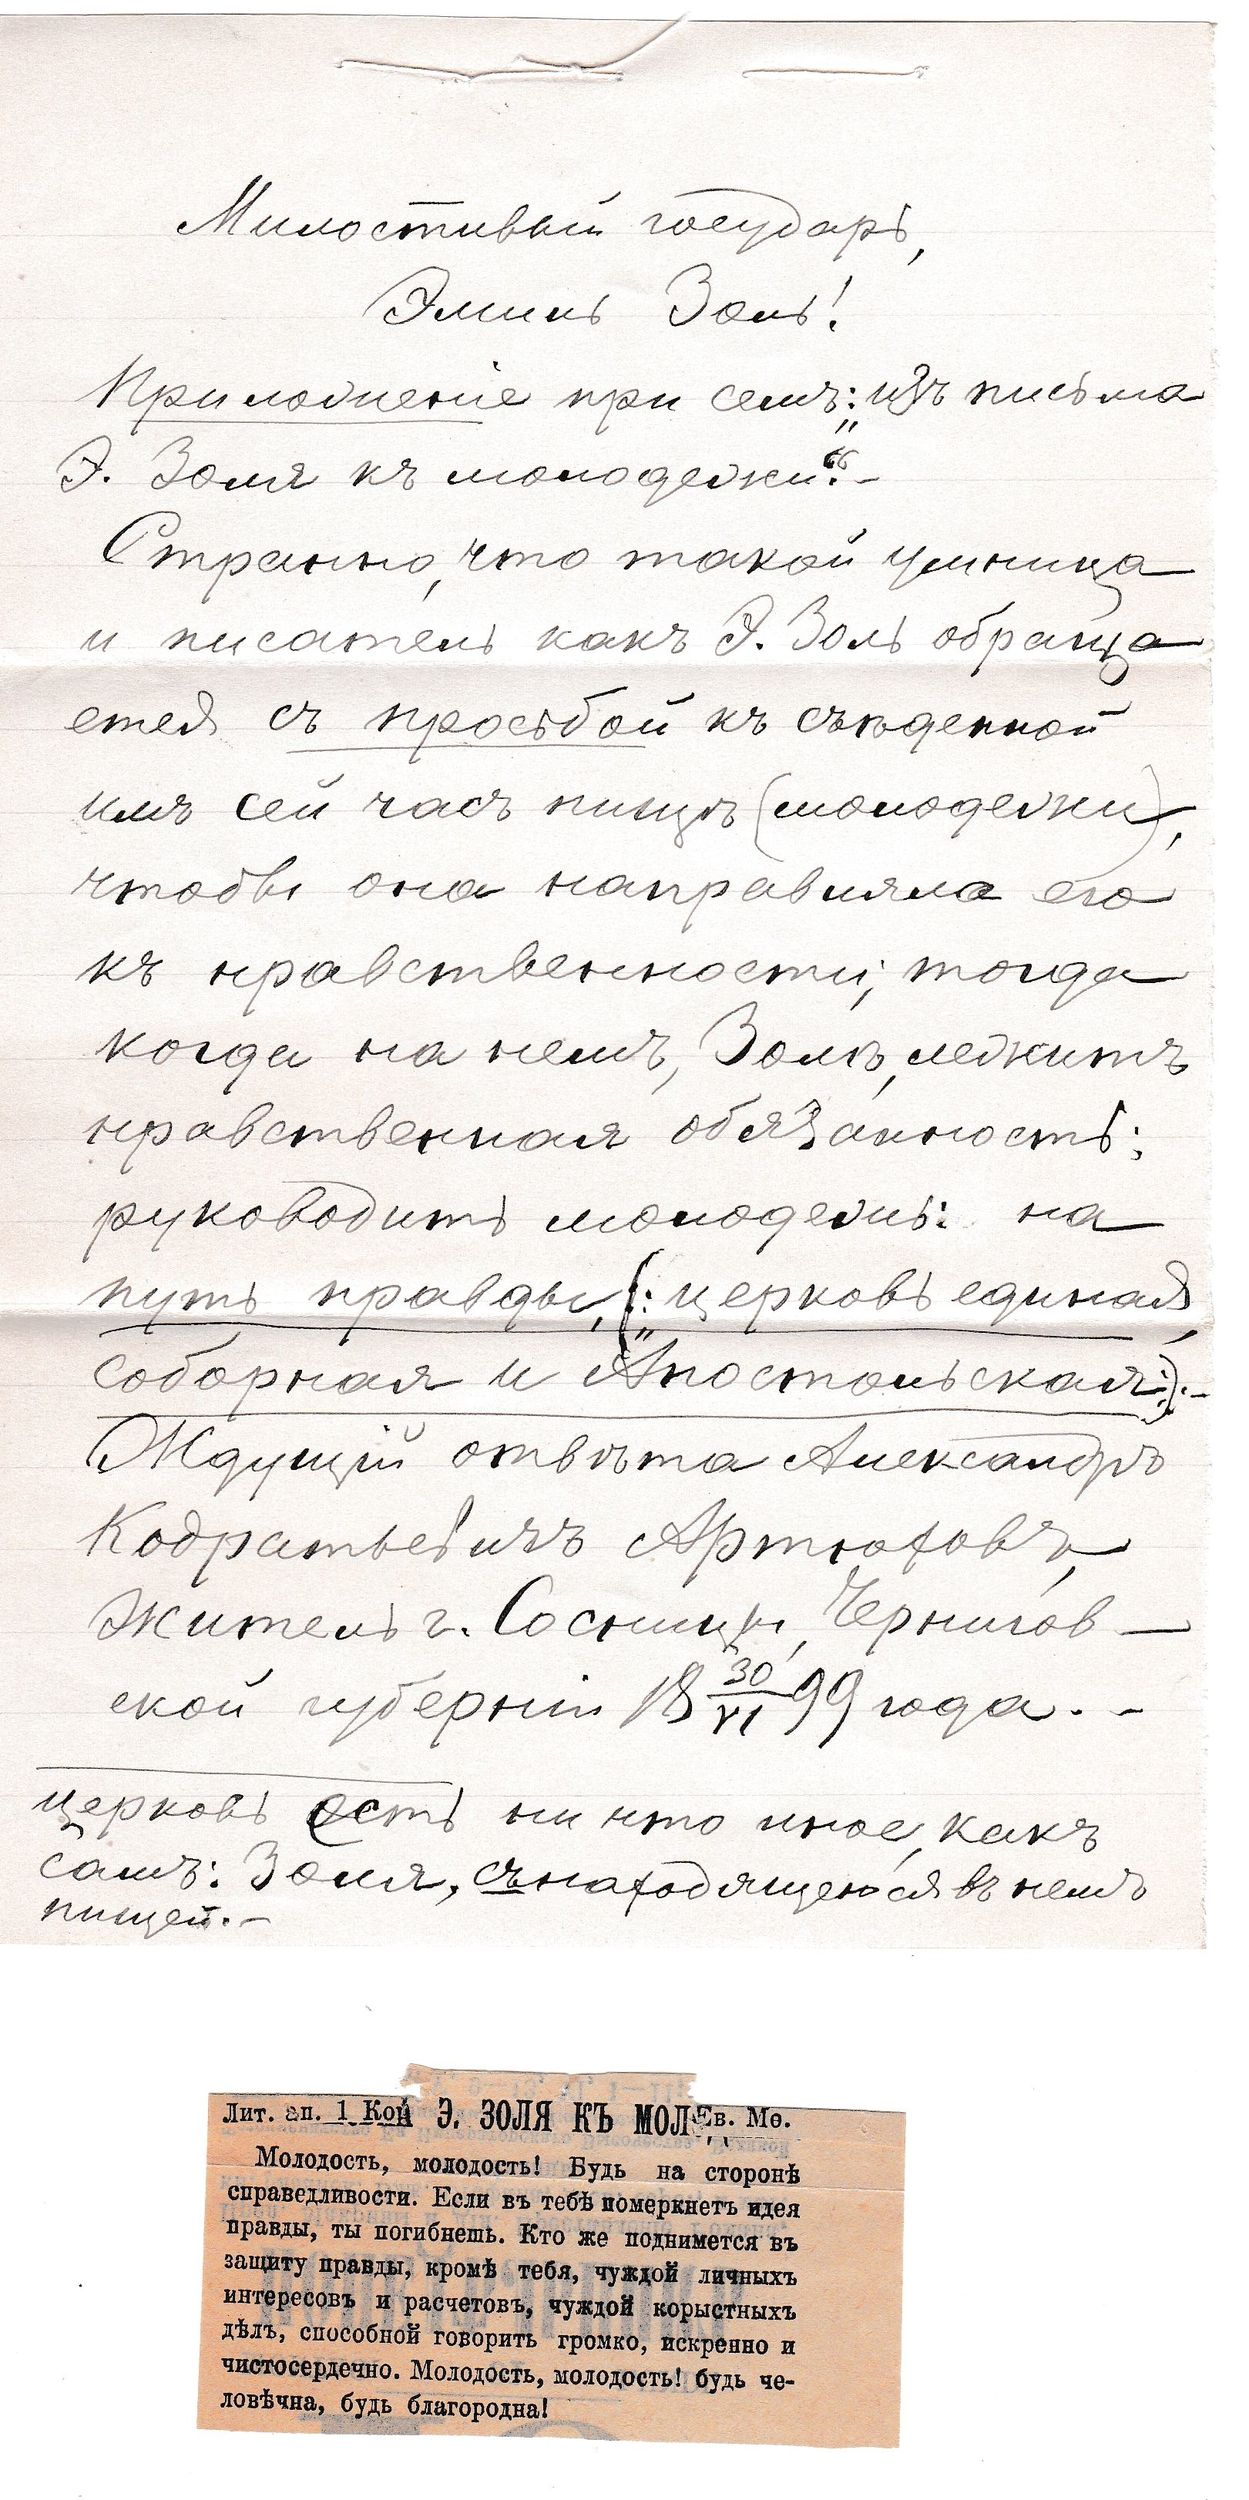 Милостивый государь,
Эмиль Золь!
Приложенiе при семъ: „изъ письма
Э. Золя къ молодежи“.-
Странно, что такой умница
и писатель какъ Э. Золь обраща
ется съ просьбой къ съѣденной
имъ сей часъ пищѣ (молодежи),
чтобы она направляла его
къ нравственности; тогда
когда на немъ, Золѣ, лежитъ
нравственная обязанность:
руководить молодежь: на
путь правды, (: „церковь единая,
соборная и Апостольская:).-
Ждущiй отвѣта Александръ
Кодратьевичъ Артюховъ,
житель г. Сосницы, Чернигов-
ской губернiи 18 30/VI 99 года.-
церковь есть ни что иное, какъ
самъ: Золя, съ находящеюся въ немъ
пищей.-
Лит. ап. 1 Кой Э. ЗОЛЯ КЪ МОЛ Ев. Мѳ.
Молодость, молодость! Будь на сторонѣ
справедливости. Если въ тебѣ померкнетъ идея
правды, ты погибнешь. Кто же поднимется въ
защиту правды, кромѣ тебя, чуждой личныхъ
интересовъ и расчетовъ, чуждой корыстныхъ
дѣлъ, способной говорить громко, искренно и
чистосердечно. Молодость, молодость! будь че-
ловѣчна, будь благородна!